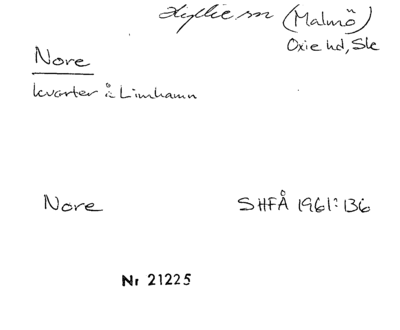 Hyllie sn (Malmö)
Oxie hd, Sk
Nore
kvarter i Limhamn
Nore SHFÅ 1961:136
Nr 21225